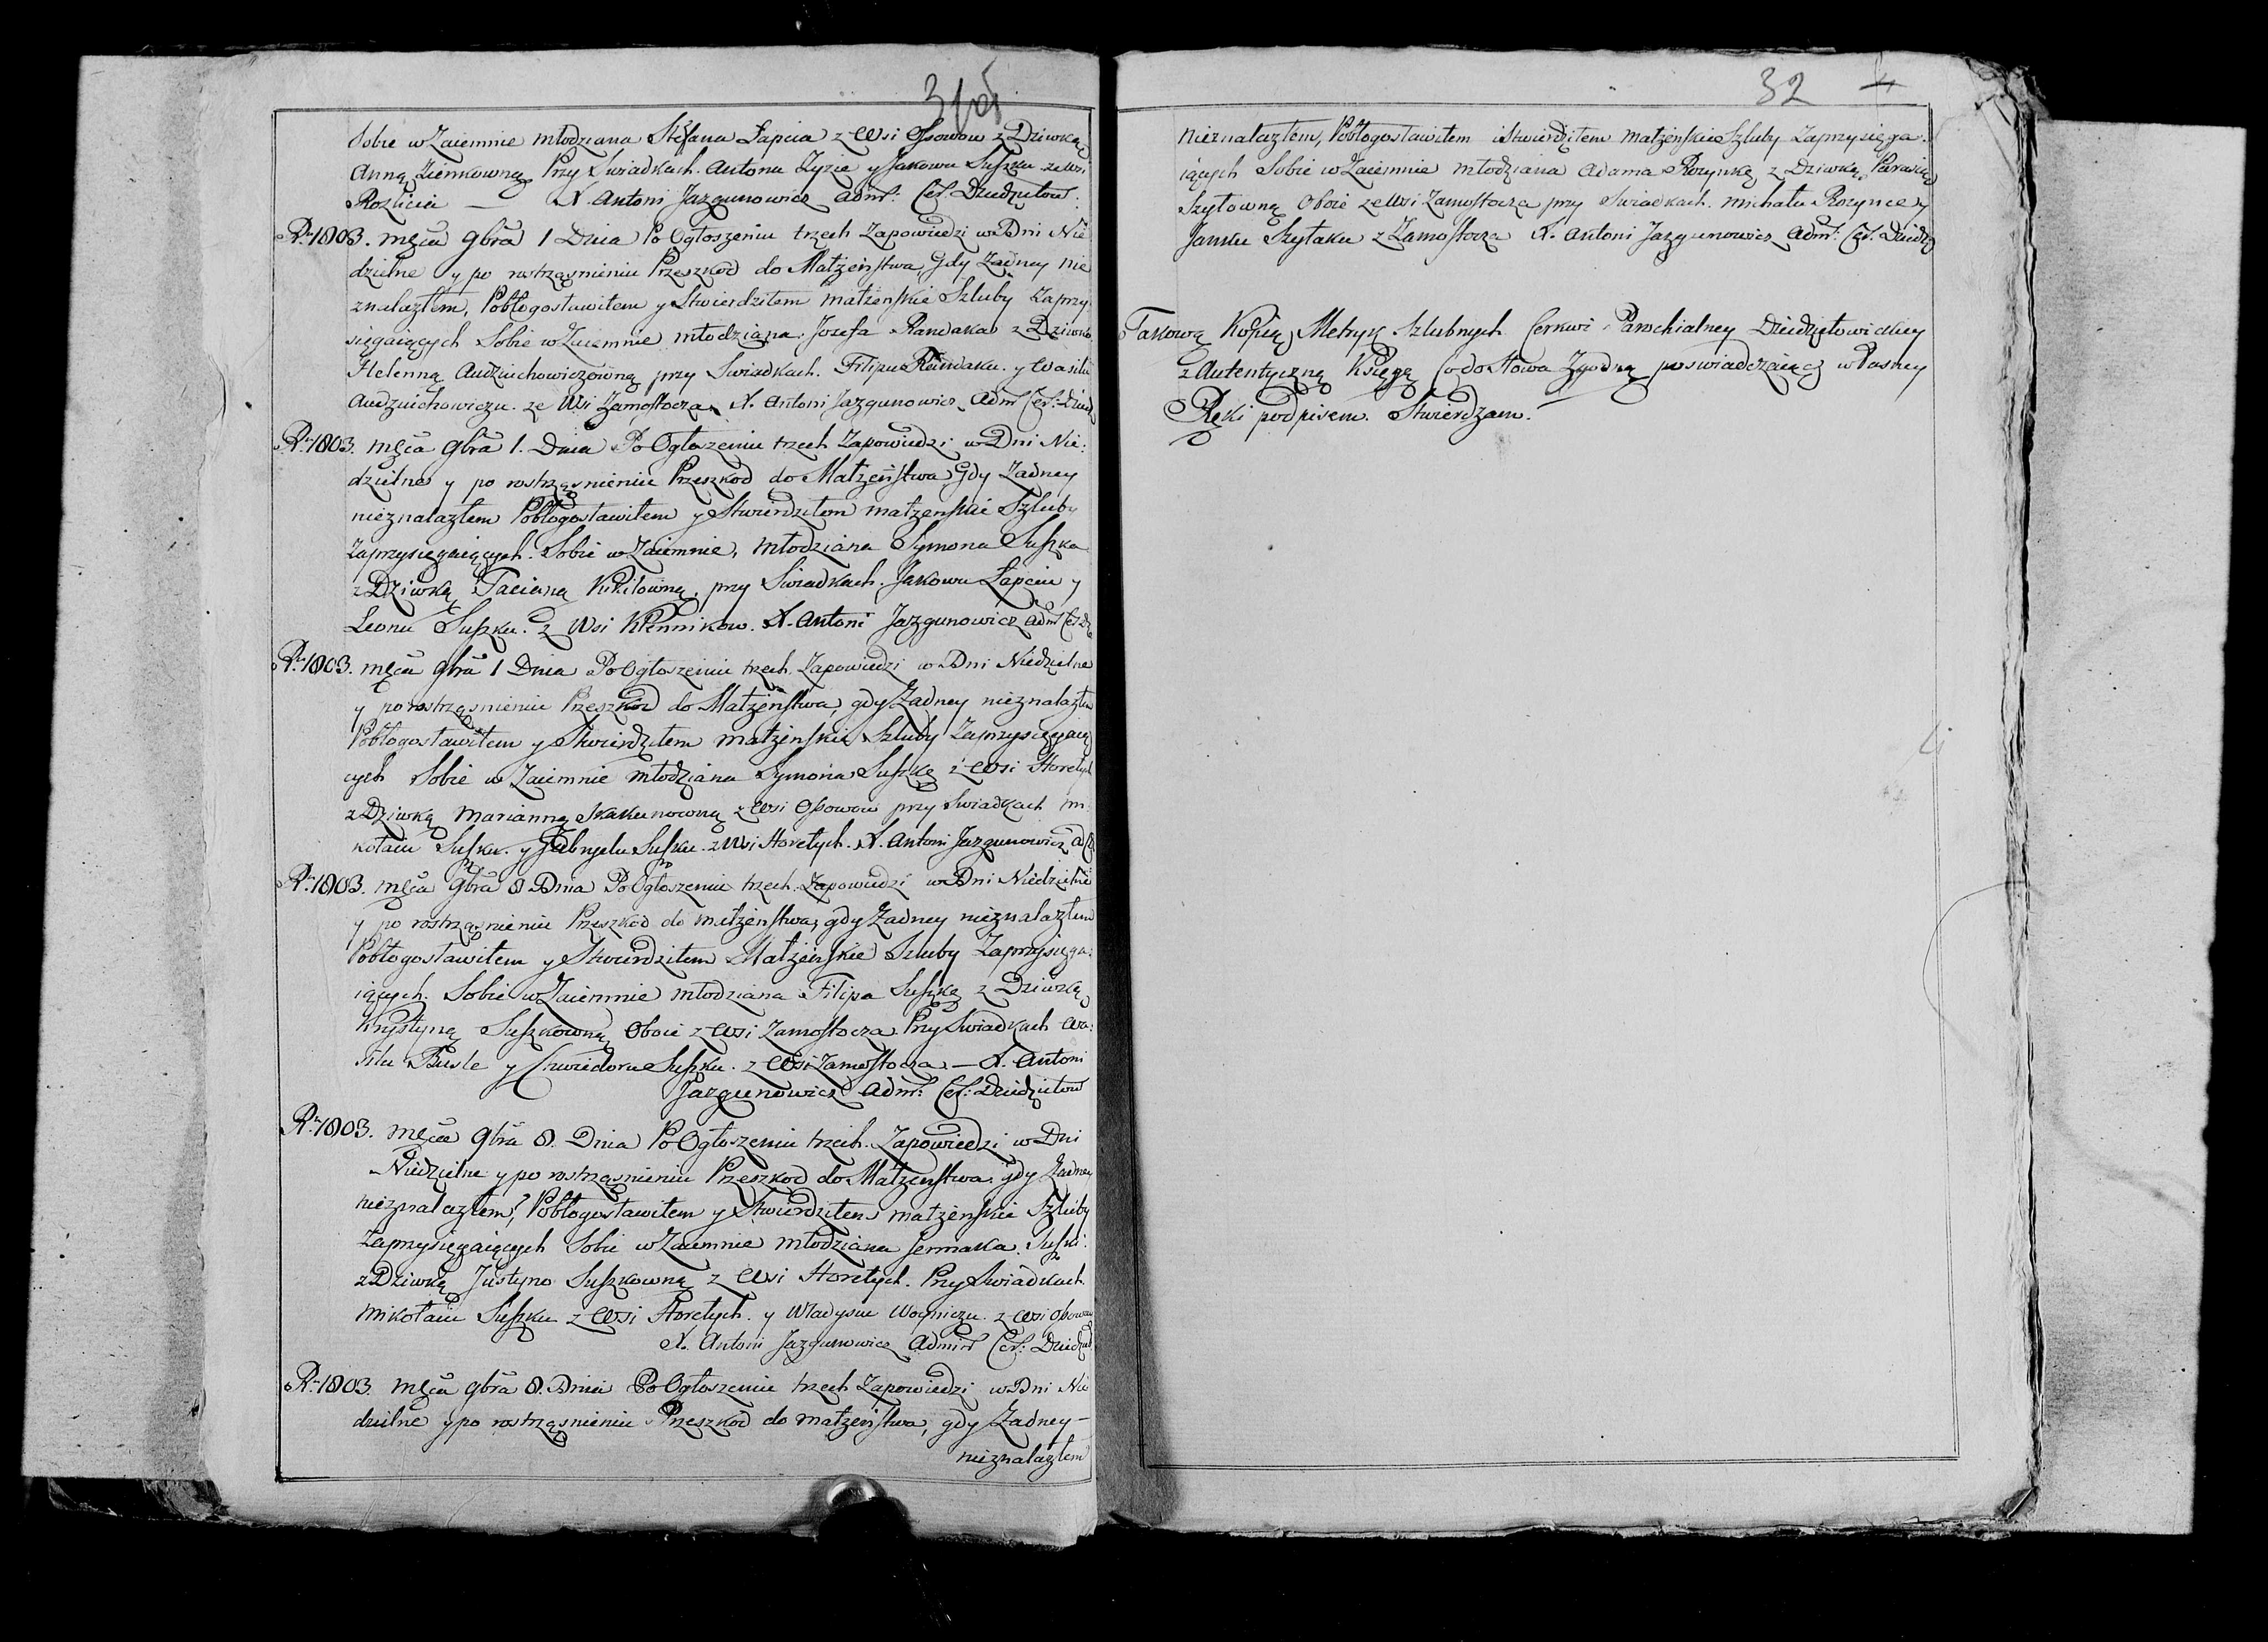 31 об
Sobie w Zaiemnie młodziana Stefana Łapcia z Wsi Ossowow z Dziwką
Anną Zienkowną Przy Swiadkach. Antonu Zyzie y Jakowu Suszku ze wsi
Rozlicia — X. Antoni Jazgunowicz Adm: Cer. Dziedziełow:
Ru 1803. męca 9bra 1 Dnia Po Ogłoszeniu trzech Zapowiedzi w Dni Nie
dzielne y po rostrząsnieniu Przeszkod do Małżeństwa, Gdy Żadney nie
znalazłem, Pobłogosławiłem y Stwierdziłem małżenskie Szluby Zaprzy
sięgaiących Sobie w Zaiemnie młodziana Jozefa Rawdaka z Dziwką
Helenną Audziuchowiczowną przy Swiadkach. Filipu Rawdaku. y Wasilu
Audziuchowiczu. ze Wsi Zamostocza X. Antoni Jazgunowicz Adm Cer: Dzied
Ru 1803. męca 9bra 1. Dnia Po Ogłoszeniu trzech Zapowiedzi w Dni Nie:
dzielne y po rostrząsnieniu Przeszkod do Małżeństwa Gdy Żadney
nieznalazłem Pobłogosławiłem y Stwierdziłem małżenskie Szluby
Zaprzysięgaiących. Sobie w Zaiemnie, młodziana Symona Suszka
z Dziwką Tacianą Kikiłowną, przy Swiadkach. Jakowu Łapciu y
Leonu Suszku. z Wsi Klennikow. X. Antoni Jazgunowicz Adm Cer Dz
Ru 1803. męca 9bra 1 Dnia Po Ogłoszeniu trzech Zapowiedzi w Dni Niedzielne
y po rostrząsnieniu Przeszkod do Małżeństwa, gdy Żadney nieznalazłem
Pobłogosławiłem y Stwierdziłem małżenskie Szluby Zaprzysięgaią
cych Sobie w Zaiemnie młodziana Symona Suszkę z Wsi Horełych
z Dziwką Marianną Skakunowną z Wsi Ossowow przy Swiadkach Mi
kołaiu Suszku. y Gabryelu Suszku. z Wsi Horełych. X. Antoni Jazgunowicz
Ru 1803. męca 9bra 8 Dnia Po Ogłoszeniu trzech Zapowiedzi w Dni Niedzielne
y po rostrząsnieniu Przeszkod do małżeństwa, gdy Żadney nieznalazłem
Pobłogosławiłem y Stwierdziłem Małżeńskie Szluby Zaprzysięga:
iących. Sobie w Zaiemnie młodziana Filipa Suszkę z Dziwką
Krystyną Suszkowną Oboie z Wsi Zamostocza Przy Swiadkach Wa:
silu Busle y Chwiedoru Suszku. z Wsi Zamostocza — X. Antoni
Jazgunowicz Adm: Cer: Dziedziełow
Ru 1803. męca 9bra 8. Dnia Po Ogłoszeniu trzech. Zapowiedzi w Dni
Niedzielne y po rostrząsnieniu Przeszkod do Małżenstwa gdy Żadney
nieznalazłem, Pobłogosławiłem y Stwierdziłem małżenskie Szluby
Zaprzysięgaiących Sobie w Zaiemnie młodziana Jermaka Suszki.
z Dziwką Justyno Suszkowną z Wsi Horełych. Przy Swiadkach
Mikołaiu Suszku z Wsi Horełych. y Władysiu Woyniczu. z Wsi Ossowow
X. Antoni Jazgunowicz Admin Cer: Dziedzieł
Ru 1803. męca 9bra 8. Dnia Po Ogłoszeniu trzech Zapowiedzi w Dni Nie
dzielne y po rostrząsnieniu Przeszkod do małżeństwa, gdy Żadney —
nieznalazłem
32
nieznalazłem, Pobłogosławiłem i Stwierdziłem małżenskie Szluby Zaprzysięga:
iących Sobie w Zaiemnie młodziana Adama Rozynkę z Dziwką Paraską
Szyłowną Oboie ze Wsi Zamostocza przy Swiadkach. Michału Rozynce y
Janku Szyłaku z Zamostocza X. Antoni Jazgunowicz Adm: Cer. Dziedz
Takową Kopią Metryk Szlubnych Cerkwi Parochialney Dziedziełowickiey
z Autentyczną Księgą Co do Słowa Zgodną poswiadczaiąc własney
Ręki podpisem. Stwierdzam.